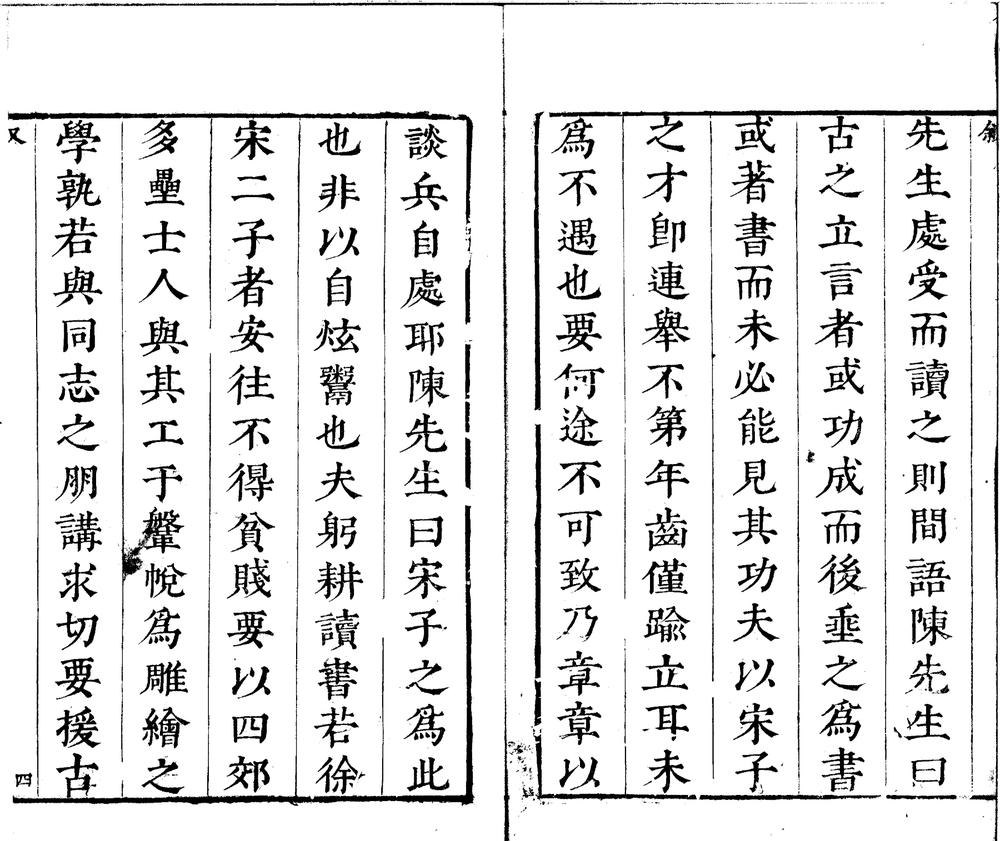 先生處受而讀之則間語陳先生曰
古之立言者或功成而後垂之為書
或著書而未必能見其功夫以宋子
之才即連舉不第年齒僅踰立耳未
為不遇也要何途不可致乃章章以
談兵自處耶陳先生曰宋子之為此
也非以自炫鬻也夫躬耕讀書若徐
宋二子者安往不得貧賤要以四郊
多壘士人與其工于鞶帨為雕繪之
學孰若與同志之朋講求切要援古
四